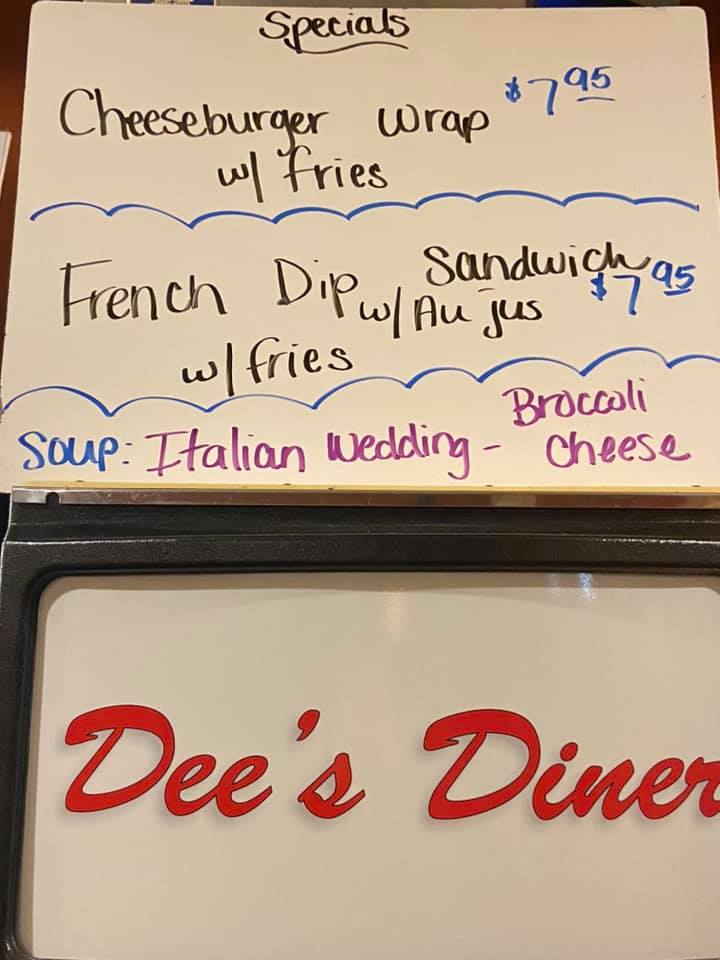 Specials
Cheeseburger wrap $7 95
w/ fries
French Dip Sandwich
w/ Au jus $7 95
w/ fries
Soup: Italian Wedding - Broccoli
Cheese
Dee's Diner